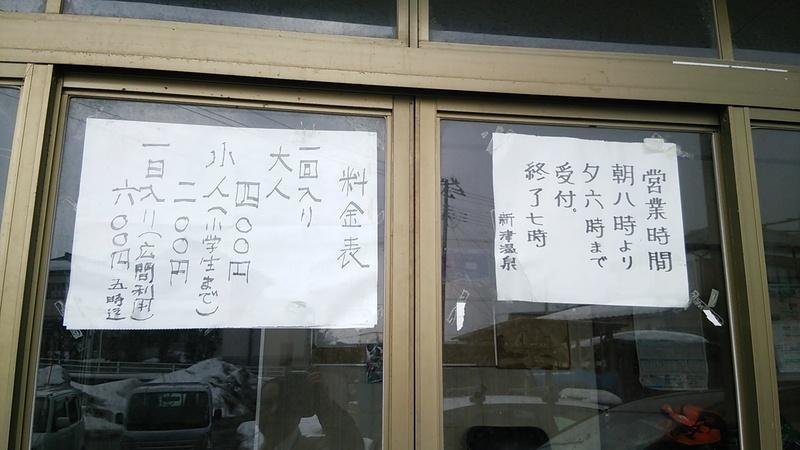 営業時間
朝八時より
夕六時まで
受付。
終了七時
新津温泉
料金表
一回入り
大人
四〇〇円
小人(小学生まで)
二〇〇円
一日入り(広間利用)
六〇〇円 五時迄